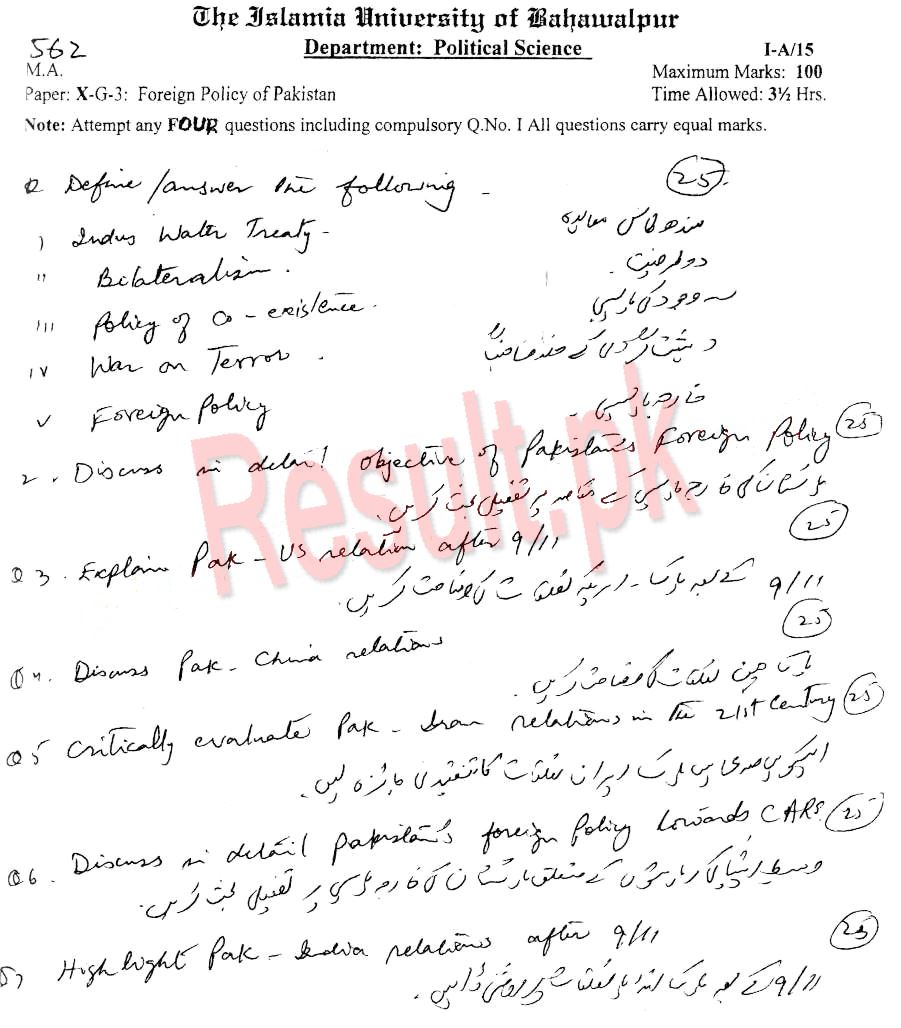 The Islamia University of Bahawalpur
562
Department: Political Science
I-A/15
M.A.
Maximum Marks: 100
Paper: X-G-3: Foreign Policy of Pakistan
Time Allowed: 3½ Hrs.
Note: Attempt any FOUR questions including compulsory Q.No. I All questions carry equal marks.
Define / answer the following - 25
I Indus Water Treaty - سندھ طاس معاہدہ
II Bilateralism . دو طرفیت
III Policy of Co-existence . کی پالیسی
IV War on Terror . دہشت گردی کے خلاف جنگ
V Foreign Policy خارجہ پالیسی
2. Discuss in detail objective of Pakistan's Foreign Policy 25
پاکستان کی خارجہ پالیسی کے مقاصد پر تفصیلی بحث کریں۔
Q 3. Explain Pak - US relation after 9/11 25
9/11 کے بعد پاک - امریکہ تعلقات کی وضاحت کریں۔
Q4. Discuss Pak - China relations 25
پاک چین تعلقات کی وضاحت کریں۔
Q5 Critically evaluate Pak - Iran relations in the 21st Century 25
اکیسویں صدی میں پاک ایران تعلقات کا تنقیدی جائزہ لیں۔
Q6. Discuss in detail Pakistan's foreign Policy towards CARs. 25
وسطی ایشیائی ریاستوں کے متعلق پاکستان کی خارجہ پالیسی پر تفصیلی بحث کریں۔
Q7 Highlight Pak - India relations after 9/11 25
9/11 کے بعد پاک انڈیا تعلقات پر روشنی ڈالیں۔
Result.pk